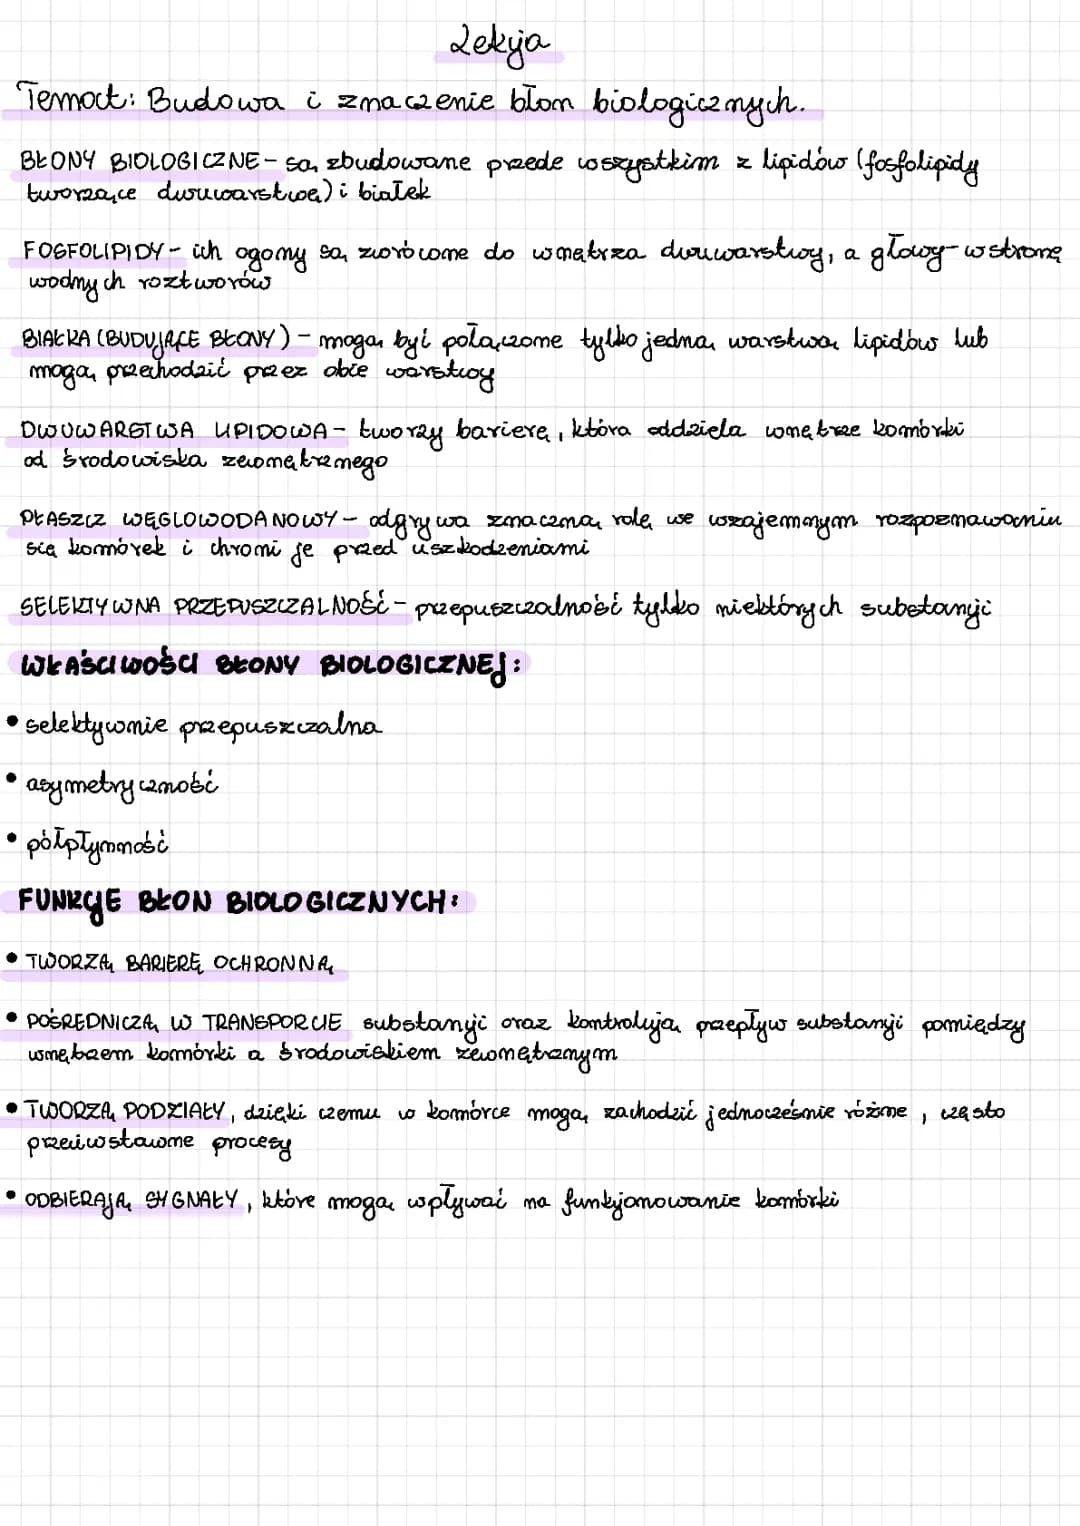 Lekcja
Temat: Budowa i znaczenie błon biologicznych.
BŁONY BIOLOGICZNE - są zbudowane przede wszystkim z lipidów (fosfolipidy
tworzące dwuwarstwę) i białek
FOSFOLIPIDY - ich ogony są zwrócone do wnętrza dwuwarstwy, a głowy - w stronę
wodnych roztworów
BIAŁKA (BUDUJĄCE BŁONY) - mogą być połączone tylko jedną warstwą lipidów lub
mogą przechodzić przez obie warstwy
DWUWARSTWA LIPIDOWA - tworzy barierę, która oddziela wnętrze komórki
od środowiska zewnętrznego
PŁASZCZ WĘGLOWODANOWY - odgrywa znaczną rolę we wzajemnym rozpoznawaniu
się komórek i chroni je przed uszkodzeniami
SELEKTYWNA PRZEPUSZCZALNOŚĆ - przepuszczalność tylko niektórych substancji
WŁAŚCIWOŚCI BŁONY BIOLOGICZNEJ:
• selektywnie przepuszczalna
• asymetryczność
• półpłynność
FUNKCJE BŁON BIOLOGICZNYCH:
• TWORZĄ BARIERĘ OCHRONNĄ
• POŚREDNICZĄ W TRANSPORCIE substancji oraz kontrolują przepływ substancji pomiędzy
wnętrzem komórki a środowiskiem zewnętrznym
• TWORZĄ PODZIAŁY, dzięki czemu w komórce mogą zachodzić jednocześnie różne, często
przeciwstawne procesy
• ODBIERAJĄ SYGNAŁY, które mogą wpływać na funkcjonowanie komórki